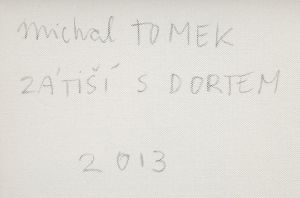 Michal TOMEK
ZÁTIŠÍ S DORTEM
2013